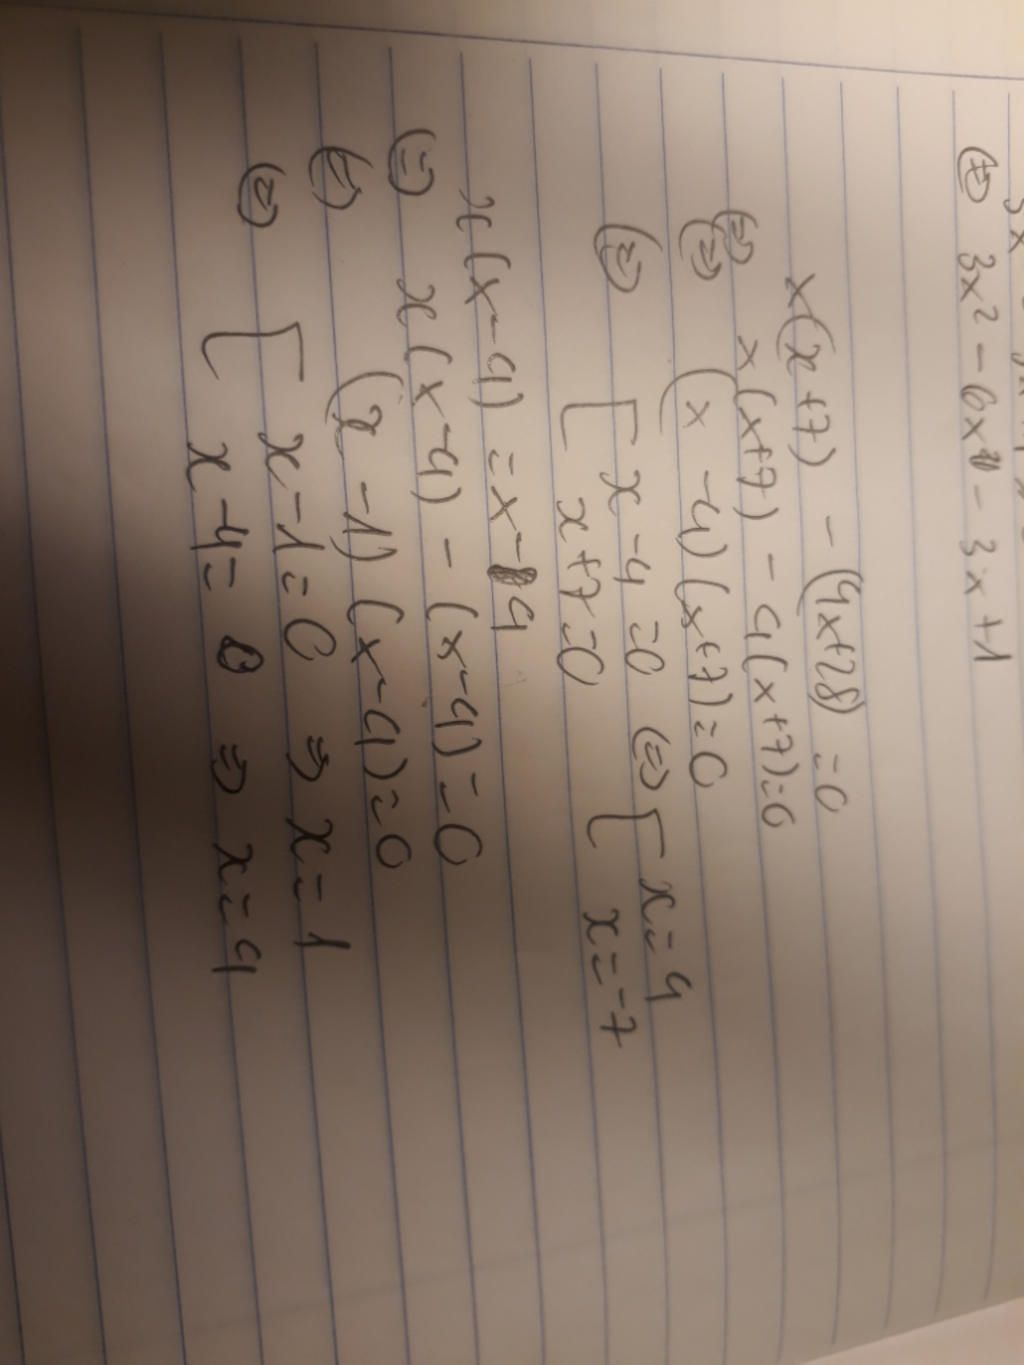 ⇔ 3x² - 6x - 3x + 1
x(x+7) - (4x+28) = 0
⇔ x(x+7) - 4(x+7) = 0
⇔ (x - 4)(x+7) = 0
⇔ [ x - 4 = 0 ⇔ [ x = 4
x + 7 = 0 x = -7
x(x-4) = x - 4
⇔ x(x-4) - (x-4) = 0
⇔ (x - 1)(x-4) = 0
⇔ [ x - 1 = 0 ⇒ x = 1
x - 4 = 0 ⇒ x = 4